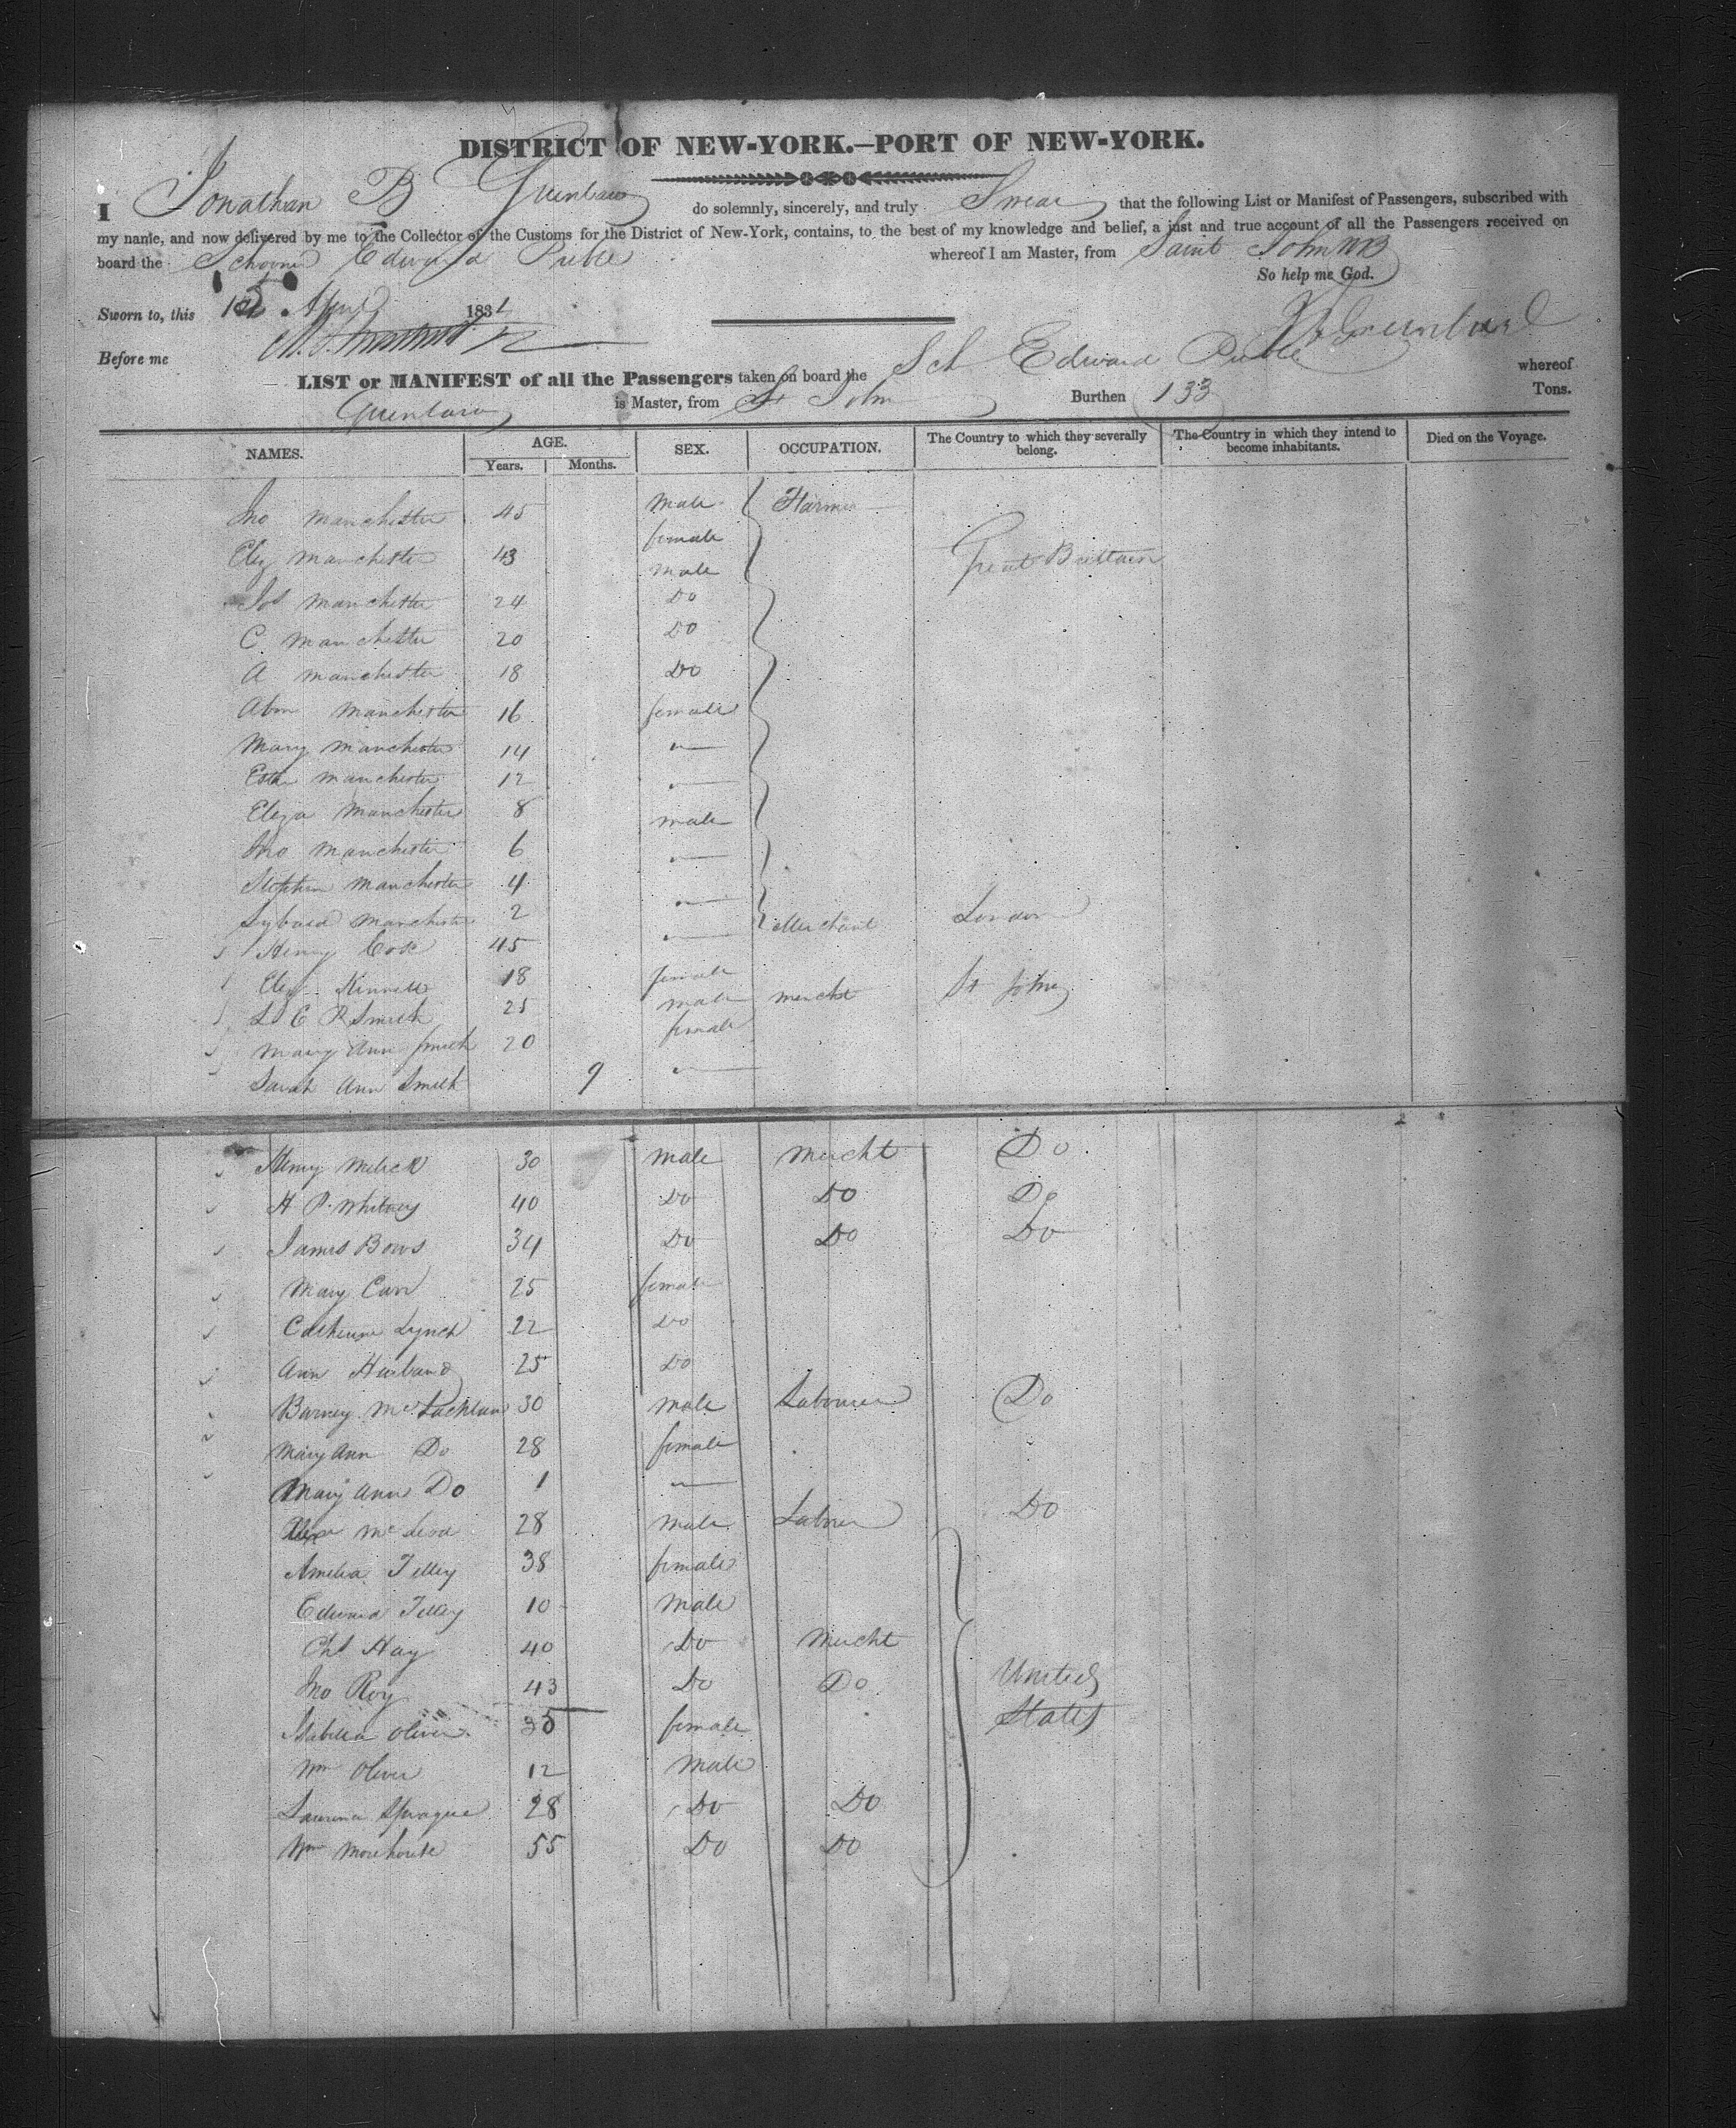 DISTRICT OF NEW-YORK.—PORT OF NEW-YORK.
I Jonathan B do solemnly, sincerely, and truly Swear that the following List or Manifest of Passengers, subscribed with
my name, and now delivered by me to the Collector of the Customs for the District of New-York, contains, to the best of my knowledge and belief, a just and true account of all the Passengers received on
board the Schooner Edward Preble whereof I am Master, from Saint John NB
So help me God.
Sworn to, this April 1834
Before me
LIST or MANIFEST of all the Passengers taken on board the Sch Edward Preble whereof
is Master, from St John Burthen 133 Tons.
NAMES. AGE. SEX. OCCUPATION. The Country to which they severally belong. The Country in which they intend to become inhabitants. Died on the Voyage.
Years. Months.
Jno Manchester 45 male Farmer
Eliz Manchester 43 female Great Brittain
Jos Manchester 24 male
C Manchester 20 Do
A Manchester 18 Do
Abm Manchester 16 Do
Mary Manchester 14 female
Esth Manchester 12 "
Eliza Manchester 8 "
Jno Manchester 6 male
Stephen Manchester 4 "
Manchester 2 "
Henry Cox 45 " Merchant London
Eliz 18 female
L C R Smith 25 male mercht St John
Mary Ann Smith 20 female
Sarah Ann Smith 9 "
Henry Melick 30 male Mercht Do
H P. Whitney 40 Do Do Do
James Bows 34 Do Do Do
Mary Carr 25 female
Catherine Lynch 22 Do
Ann 25 Do
Barney McLachlan 30 male Labourer Do
Mary Ann Do 28 female
Mary Ann Do 1 "
McLeod 28 male Labourer Do
Amelia Tilley 38 female
Edward Tilley 10 male
Chs Hay 40 Do Mercht
Jno Roy 43 Do Do United
Isabella Oliver 35 female States
Wm Oliver 12 male
Sprague 28 Do Do
Wm Morehouse 55 Do Do